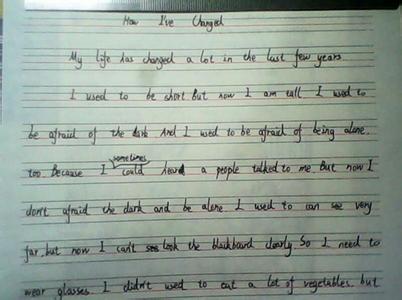 How I've Changed
My life has changed a lot in the last few years.
I used to be short. But now I am tall. I used to
be afraid of the dark. And I used to be afraid of being alone,
too. Because I sometimes could heard a people talked to me. But now I
don't afraid the dark and be alone. I used to can see very
far, but now I can't see look the blackboard clearly. So I need to
wear glasses. I didn't used to eat a lot of vegetables, but